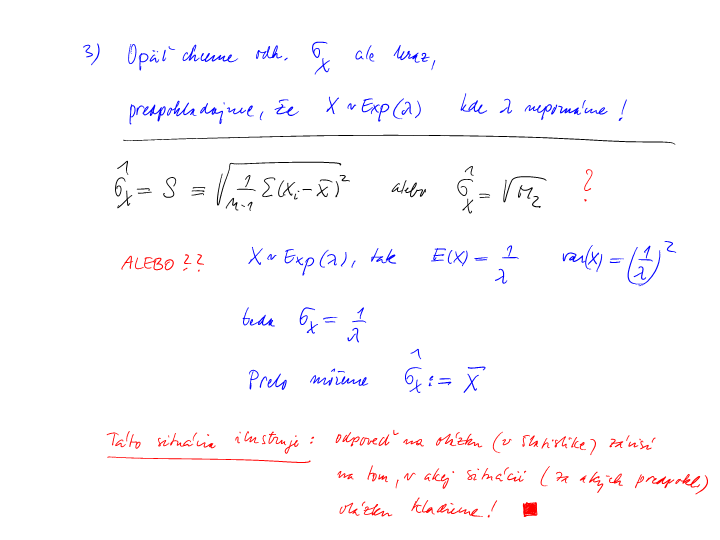 3) Opäť chceme odh. σ_X ale teraz,
predpokladajme, že X ~ Exp(λ) kde λ nepoznáme!
σ̂_X = S ≡ √(1/(n-1) Σ(X_i - X̄)²) alebo σ̂_X = √M₂ ?
ALEBO ?? X ~ Exp(λ), tak E(X) = 1/λ var(X) = (1/λ)²
teda σ_X = 1/λ
Preto môžeme σ̂_X := X̄
Táto situácia ilustruje: odpoveď na otázku (v štatistike) závisí
na tom, v akej situácii (za akých predpokl)
otázku kladieme!